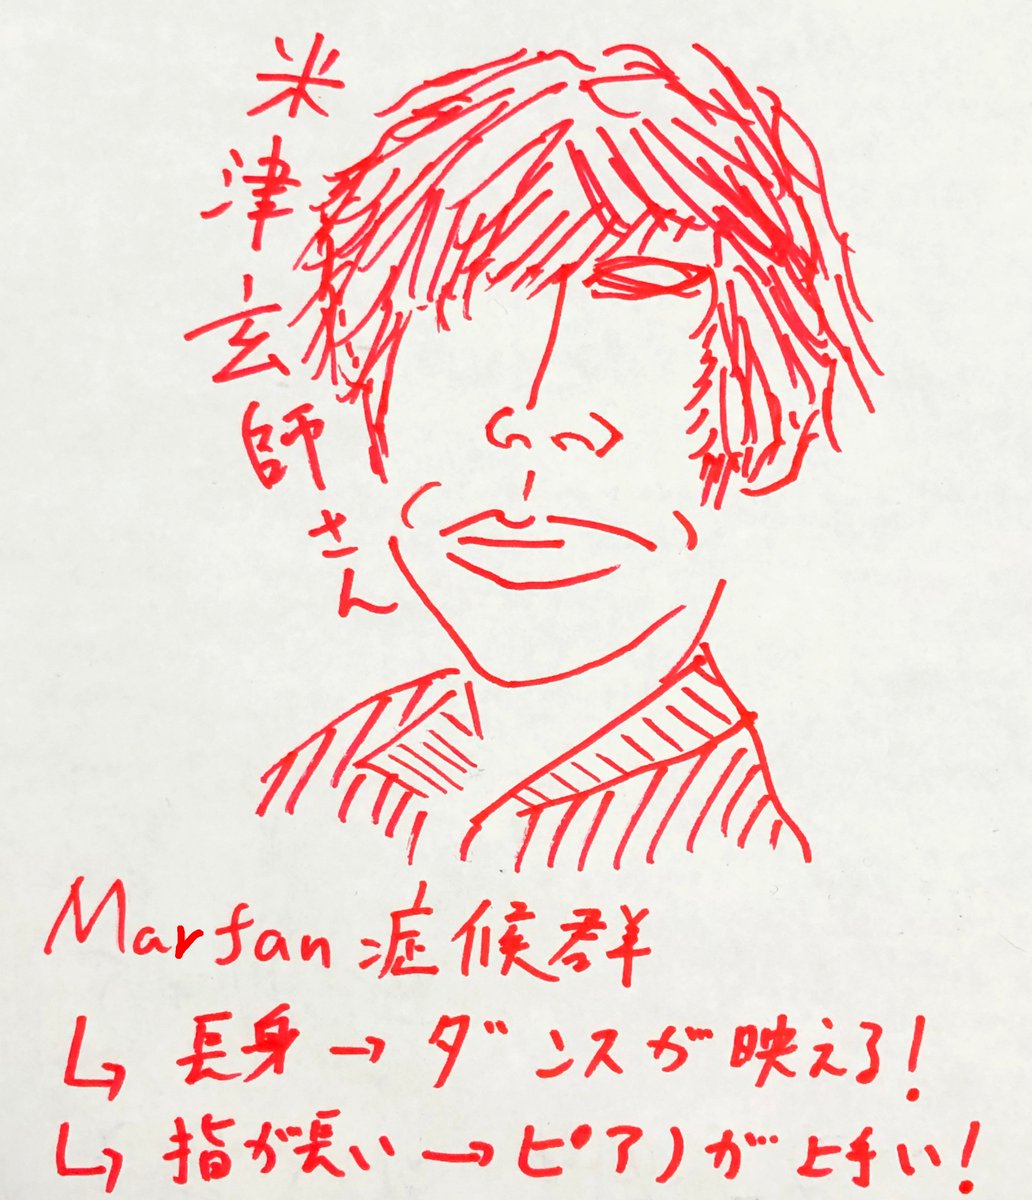 米津玄師さん
Marfan症候群
↳ 長身→ダンスが映える!
↳ 指が長い→ピアノが上手い!